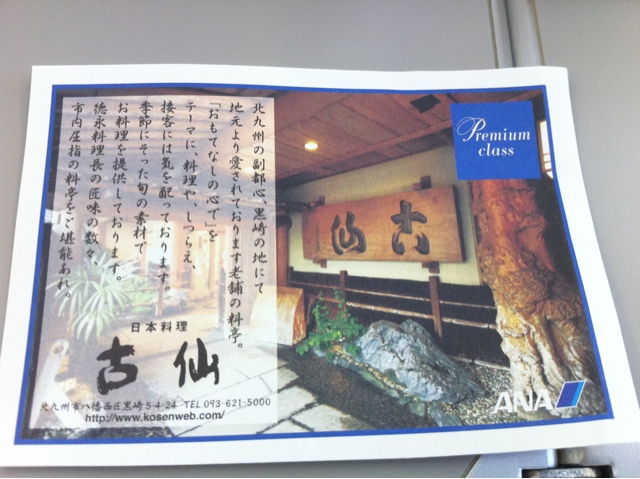 北九州の副都心、黒崎の地にて
地元より愛されております老舗の料亭。
「おもてなしの心で」を
テーマに、料理や、しつらえ、
接客には気を配っております。
季節にそった旬の素材で
お料理を提供しております。
徳永料理長の匠味の数々
市内屈指の料亭をご堪能あれ。
日本料理
古仙
北九州市八幡西区黒崎5-4-24 TEL 093-621-5000
http://www.kosenweb.com/
仙古
Premium
class
ANA